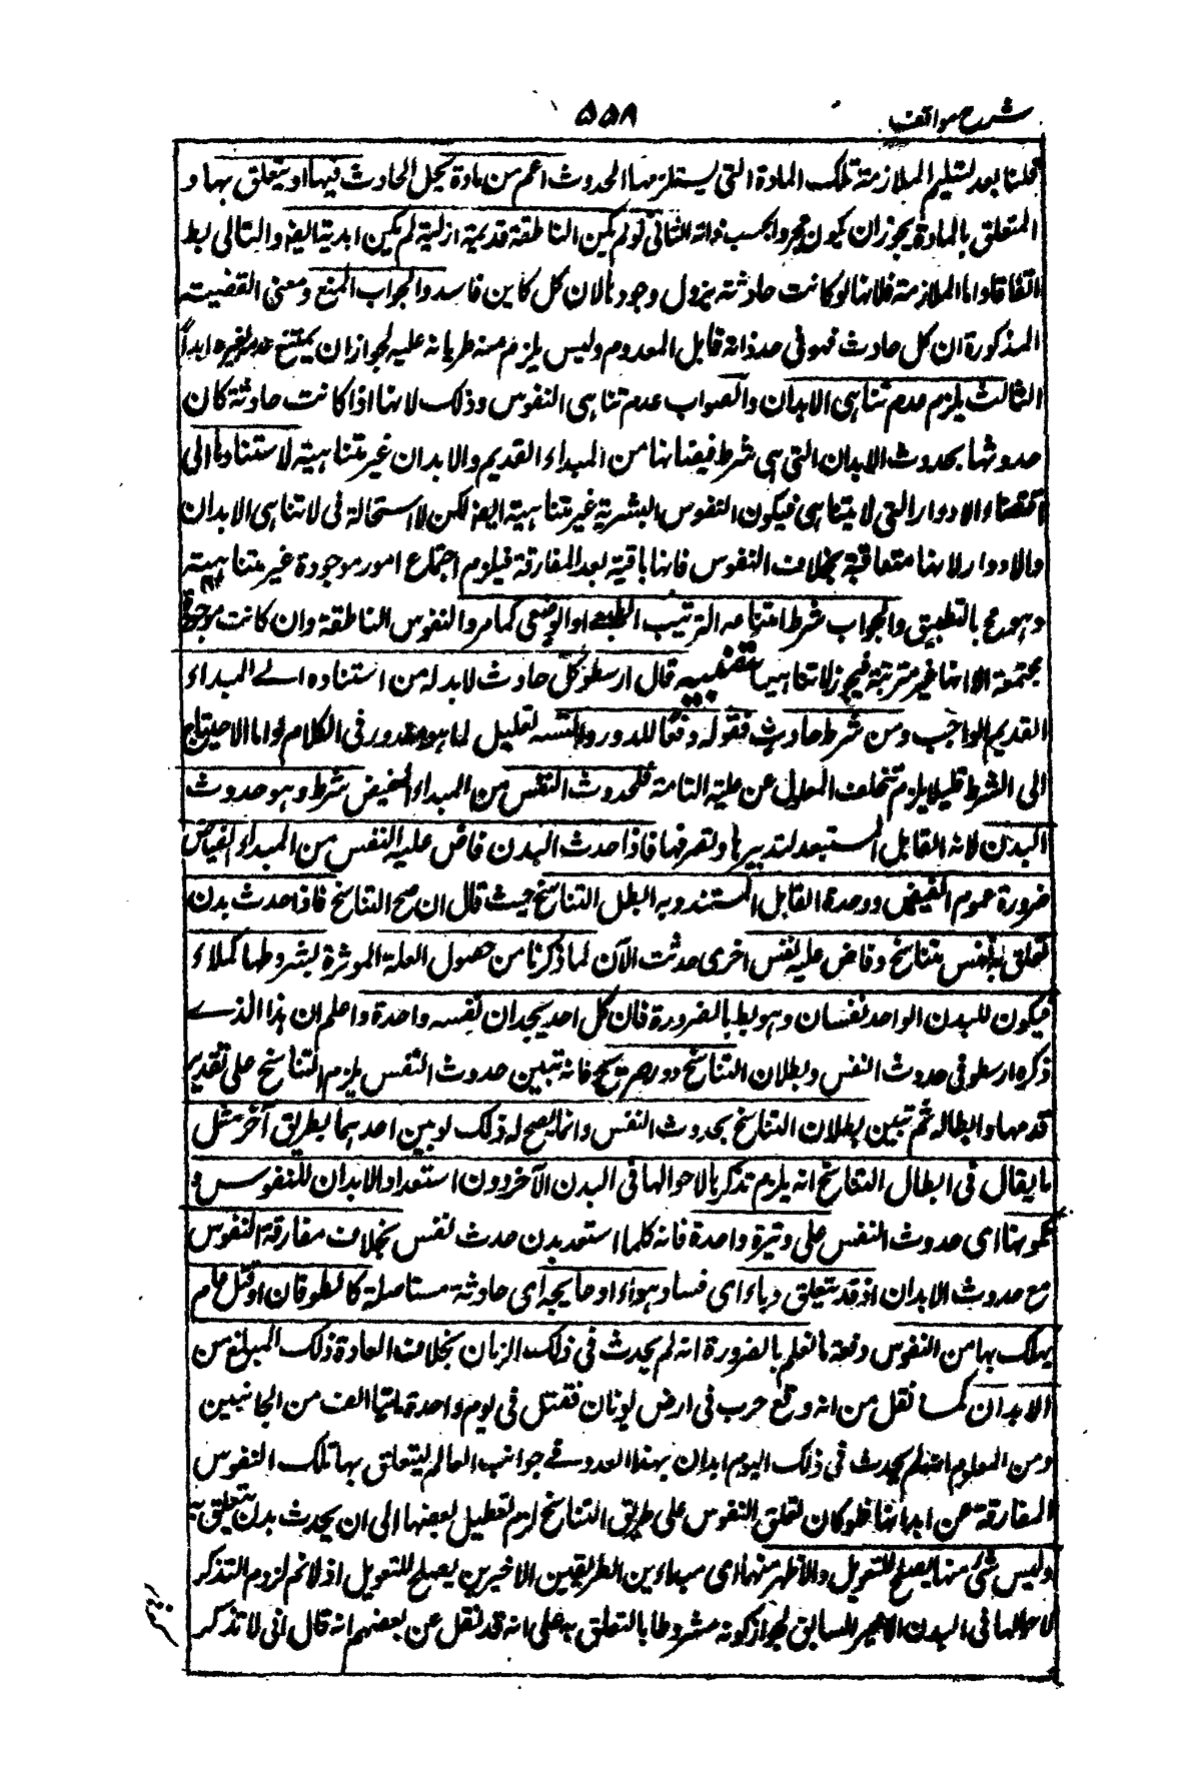 شرح مواقف
۵۵۸
قلنا بعد تسليم الملازمة تلك المادة التى يستلزمها الحدوث اعم من مادة يحل الحادث فيها او يتعلق بها و
المتعلق بالمادة يجوز ان يكون مجردا بحسب ذاته الثانى لو لم يكن الناطقة قديمة ازلية لم يكن ابدية ايضا والتالى بط
اتفاقا واما الملازمة فلانها لو كانت حادثة يزول وجودها لان كل كاين فاسد والجواب المنع ومعنى القضية
المذكورة ان كل حادث فهو فى حد ذاته قابل المعدوم وليس يلزم منه طريانه عليه لجواز ان يمتنع عدمه لغيره ابدا
الثالث يلزم عدم تناهى الابدان والصواب عدم تناهى النفوس وذلك لانها اذا كانت حادثة كان
حدوثها بحدوث الابدان التى هى شرط فيضانها من المبداء القديم والابدان غير متناهية لاستنادها الى
اقتضاء الادوار التى لا يتناهى فيكون النفوس البشرية غير متناهية ايضا لكن لا استحالة فى لا تناهى الابدان
والادوار لانها متعاقبة بخلاف النفوس فانها باقية بعد المفارقة فيلزم اجتماع امور موجودة غير متناهية
وهو مح بالتطبيق والجواب شرط امتناعه الترتيب الطبعى او الوضعى كما مر والنفوس الناطقة وان كانت موجودة
مجتمعة الا انها غير مترتبة فيجوز لا تناهيها تنبيه قال ارسطو كل حادث لا بد له من استناده الى المبداء
القديم الواجب ومن شرط حادث فقوله دفعا للدور والتسـ تعليل لما هو مقدر فى الكلام واما الاحتياج
الى الشرط فليلا يلزم تخلف المعلول عن علته التامة فلحدوث النفس من المبداء المفيض شرط وهو حدوث
البدن لانه القابل المستعد لتدبيرها وتصرفها فاذا حدث البدن فاض عليه النفس من المبداء الفياض
ضرورة عموم الفيض ووجدة القابل المستند وبه ابطل التناسخ حيث قال ان صح التناسخ فاذا حدث بدن
تعلق به نفس بتناسخ وفاض عليه نفس اخرى حدثت الآن لما ذكرنا من حصول العلة الموثرة بشروطها كملاء
فيكون للبدن الواحد نفسان وهو بط بالضرورة فان كل احد يجد ان نفسه واحدة واعلم ان هذا الذے
ذكره ارسطو فى حدوث النفس وبطلان التناسخ دور صريح فانه تبين حدوث النفس يلزم التناسخ على تقدير
قدمها وابطاله ثم تبين بطلان التناسخ بحدوث النفس وانما يصح له ذلك لو بين احدهما بطريق آخر مثل
ما يقال فى ابطال التناسخ انه يلزم تذكرها لاحوالها فى البدن الآخر دون استعداد الابدان للنفوس و
تكونها اى حدوث النفس على وتيرة واحدة فانه كلما استعد بدن حدث نفس بخلاف مفارقة النفوس
مع حدوث الابدان اذ قد يتعلق وباء اى فساد هواء او جايحة اى حادثة مستاصلة كالطوفان او قتل عام
يهلك بها من النفوس دفعة ما نعلم بالضرورة انه لم يحدث فى ذلك الزمان بخلاف العادة ذلك المبلغ من
الابدان كما نقل من انه وقع حرب فى ارض يونان فقتل فى يوم واحدة مايتا الف من الجانبين
ومن المعلوم انه لم يحدث فى ذلك اليوم ابدان بهذا العدد فے جوانب العالم ليتعلق بها تلك النفوس
المفارقة عن ابدانها فلو كان تعلق النفوس على طريق التناسخ لزم تعطيل بعضها الى ان يحدث بدن يتعلق به
وليس شئ منها يصلح للتعويل والاظهر منهما اى مبداء من الطريقين الاخيرين يصلح للتعويل اذ لا نم لزوم التذكر
لاحوالها فى البدن الآخر للسابق لجواز كونه مشروطا بالتعلق به على انه قد نقل عن بعضهم انه قال انى لا تذكر